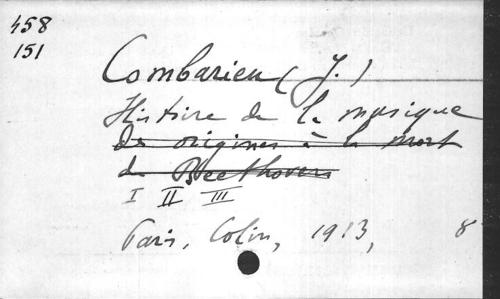 458
151
Combarieu (J.)
Histoire de la musique
des origines à la mort
de Beethoven
I II III
Paris, Colin, 1913, 8